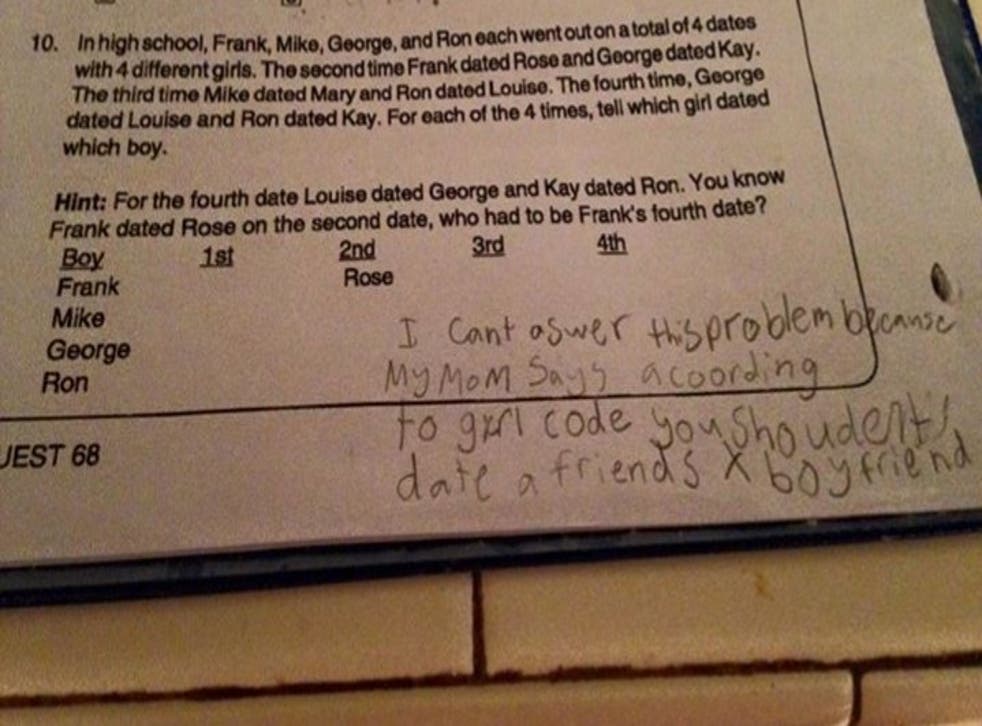 10. In high school, Frank, Mike, George, and Ron each went out on a total of 4 dates
with 4 different girls. The second time Frank dated Rose and George dated Kay.
The third time Mike dated Mary and Ron dated Louise. The fourth time, George
dated Louise and Ron dated Kay. For each of the 4 times, tell which girl dated
which boy.
Hint: For the fourth date Louise dated George and Kay dated Ron. You know
Frank dated Rose on the second date, who had to be Frank's fourth date?
Boy 1st 2nd 3rd 4th
Frank Rose
Mike
George
Ron
I Cant aswer this problem because
My Mom Says acoording
to girl code you shoudent
date a friends X boyfriend
UEST 68